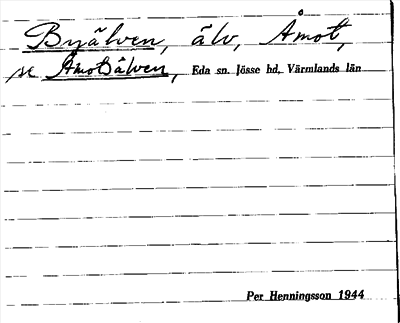 Byälven, älv, Åmot,
se Åmotsälven, Eda sn. Jösse hd, Värmlands län
Per Henningsson 1944